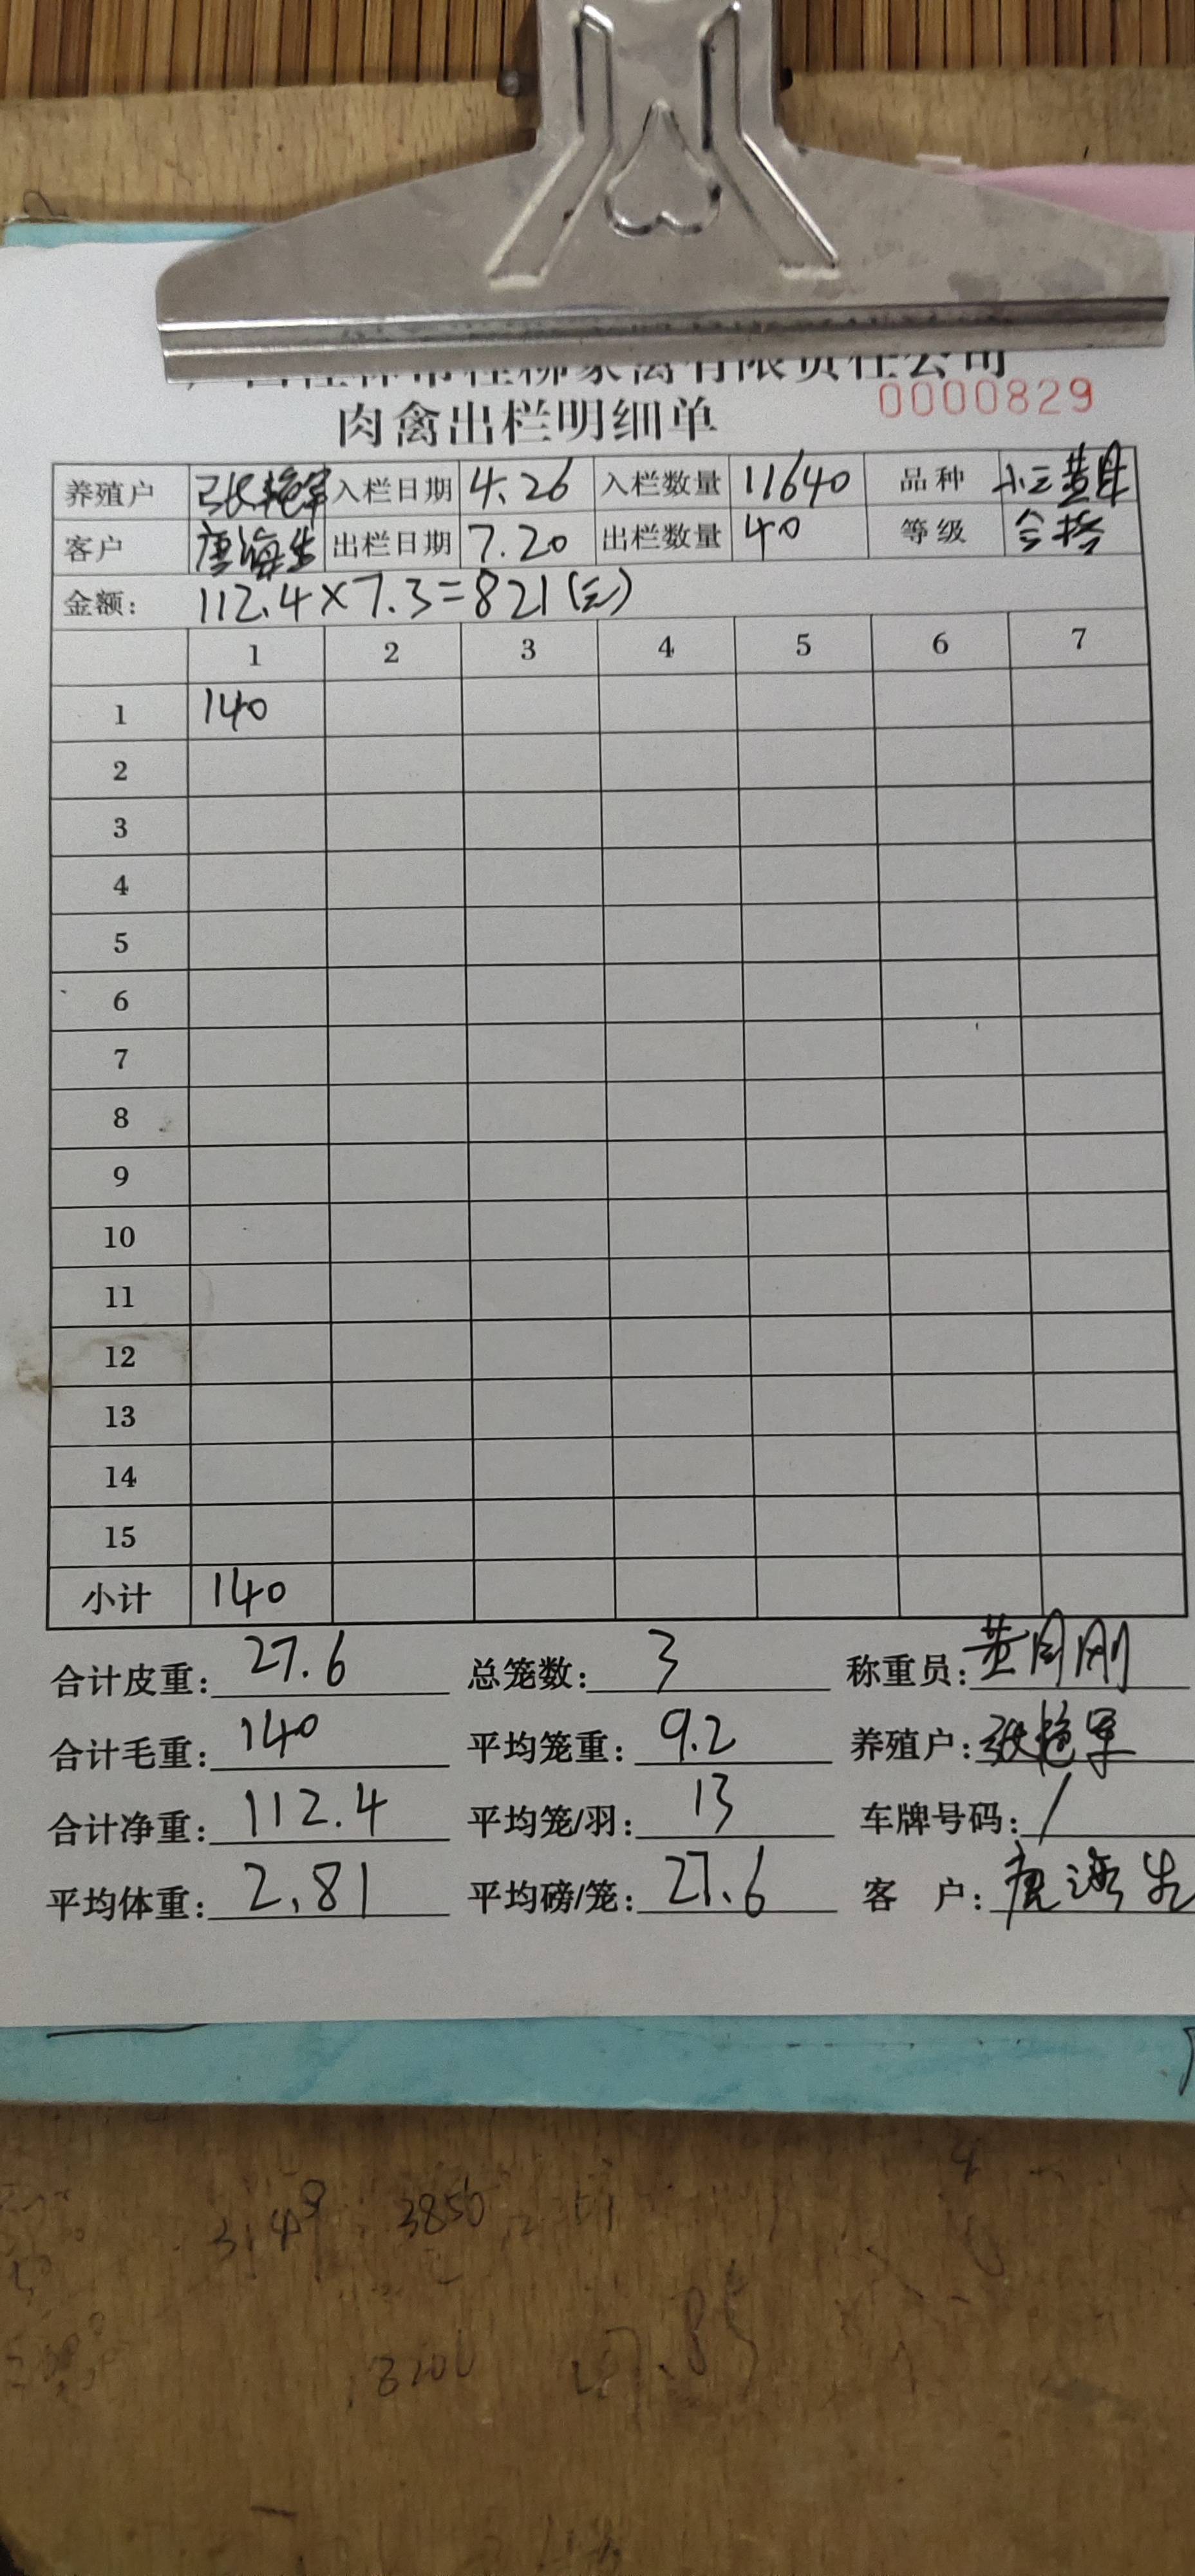 桂柳家禽有限责任公司
肉禽出栏明细单 0000829
养殖户 张艳军 入栏日期 4.26 入栏数量 11640 品种 小三黄
客户 唐海生 出栏日期 7.20 出栏数量 40 等级 合格
金额: 112.4×7.3=821(元)
1 2 3 4 5 6 7
1 140
2
3
4
5
6
7
8
9
10
11
12
13
14
15
小计 140
合计皮重: 27.6 总笼数: 3 称重员: 黄周刚
合计毛重: 140 平均笼重: 9.2 养殖户: 张艳军
合计净重: 112.4 平均笼/羽: 13 车牌号码: /
平均体重: 2.81 平均磅/笼: 27.6 客 户: 唐海生
3850